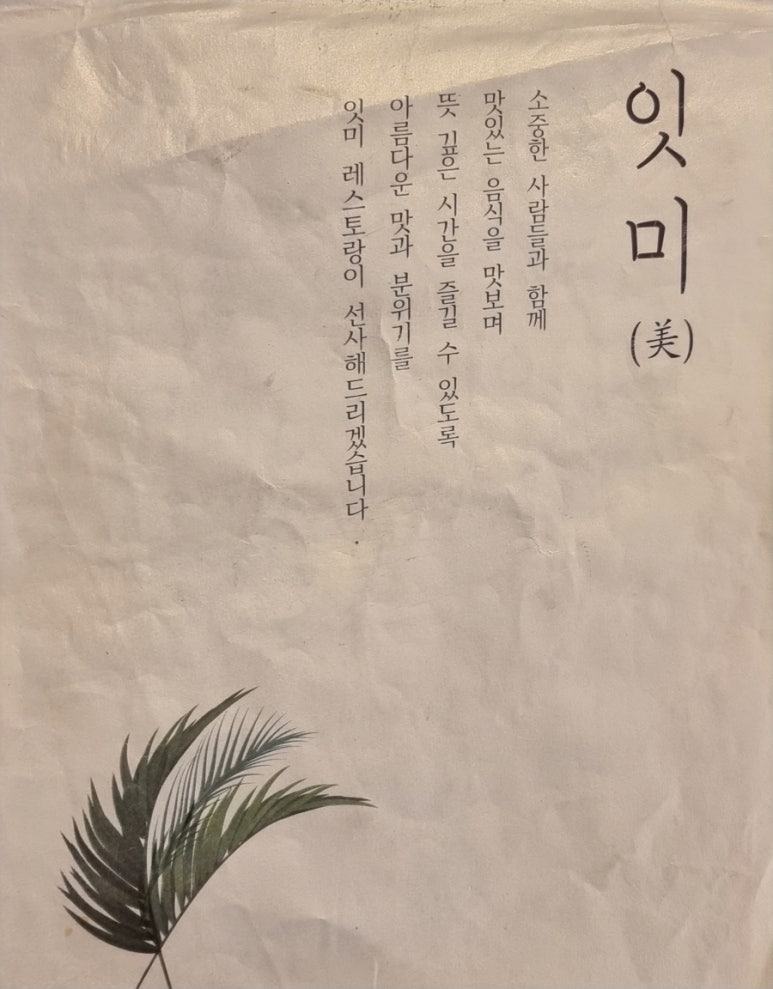 잇미
(美)
소중한 사람들과 함께
맛있는 음식을 맛보며
뜻 깊은 시간을 즐길 수 있도록
아름다운 맛과 분위기를
잇미 레스토랑이 선사해드리겠습니다.